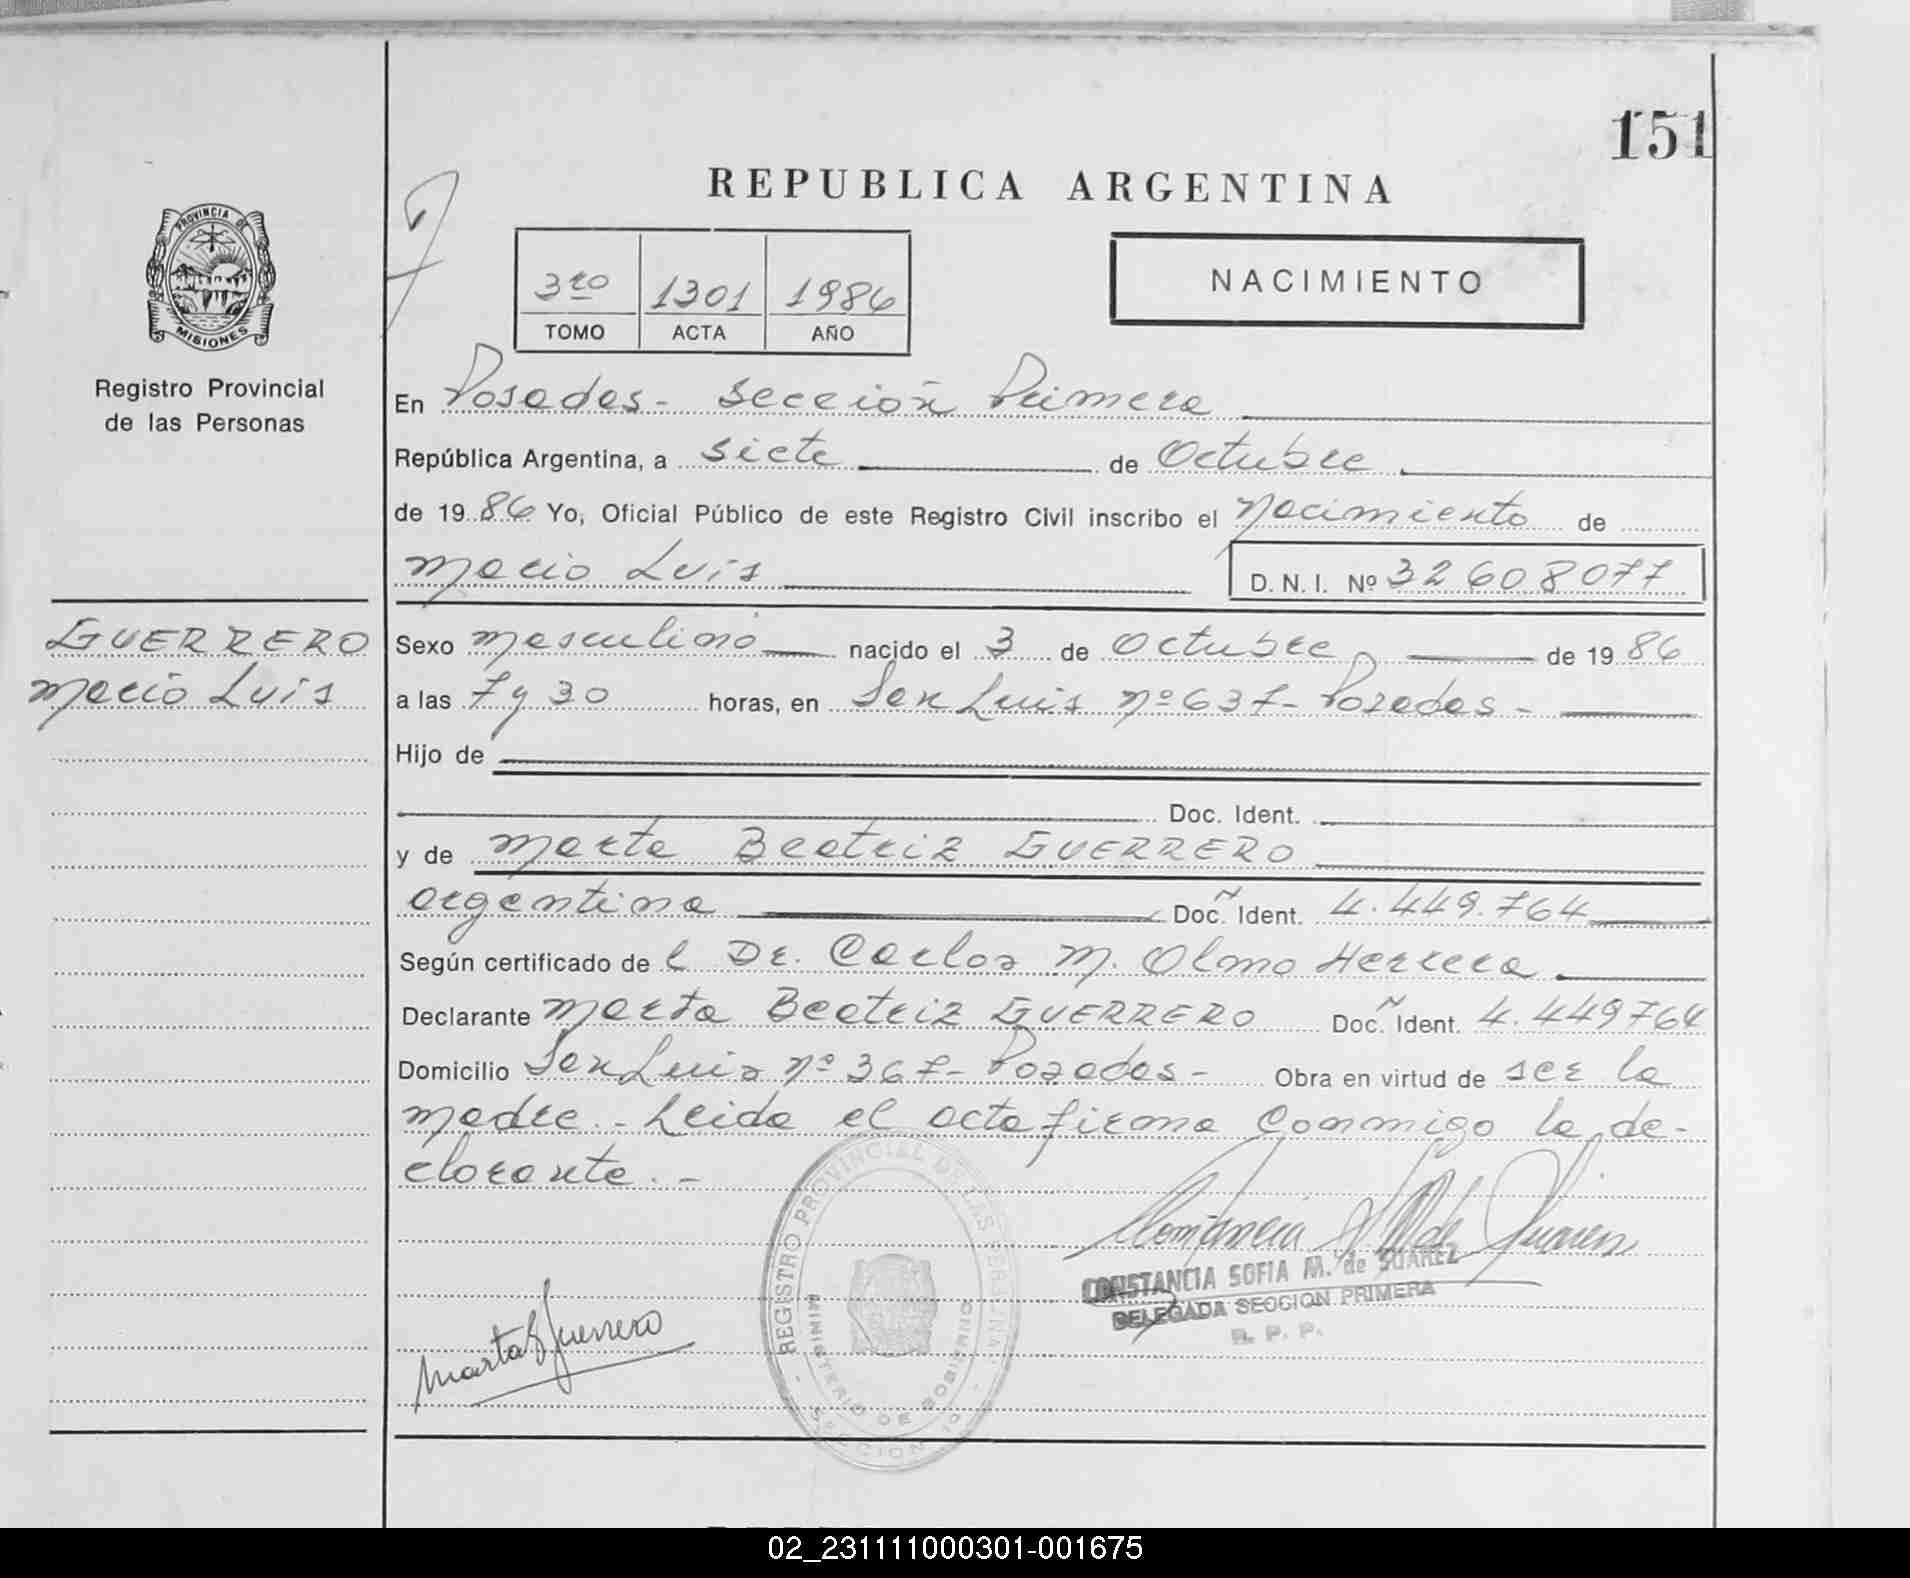 151
REPUBLICA ARGENTINA
PROVINCIA DE
MISIONES
Registro Provincial
de las Personas
3ro 1301 1986
TOMO ACTA AÑO
NACIMIENTO
En Posadas - Sección Primera
República Argentina, a siete de Octubre
de 1986 Yo, Oficial Público de este Registro Civil inscribo el Nacimiento de
Mario Luis D. N. I. Nº 32608077
GUERRERO
Mario Luis
Sexo masculino nacido el 3 de Octubre de 1986
a las 7 y 30 horas, en San Luis nº 637 - Posadas -
Hijo de
Doc. Ident.
y de Marta Beatriz GUERRERO
argentina Doc. Ident. 4.449.764
Según certificado de l Dr. Carlos M. Olmo Herrera
Declarante Marta Beatriz GUERRERO Doc. Ident. 4.449764
Domicilio San Luis nº 367 - Posadas - Obra en virtud de ser la
madre. - Leida el acta firma conmmigo la de-
clarante. -
REGISTRO PROVINCIAL DE LAS PERSONAS
MINISTERIO DE GOBIERNO
SECCION 1º
CONSTANCIA SOFIA M. de SUAREZ
DELEGADA SECCION PRIMERA
R. P. P.
Marta B Guerrero
02_231111000301-001675